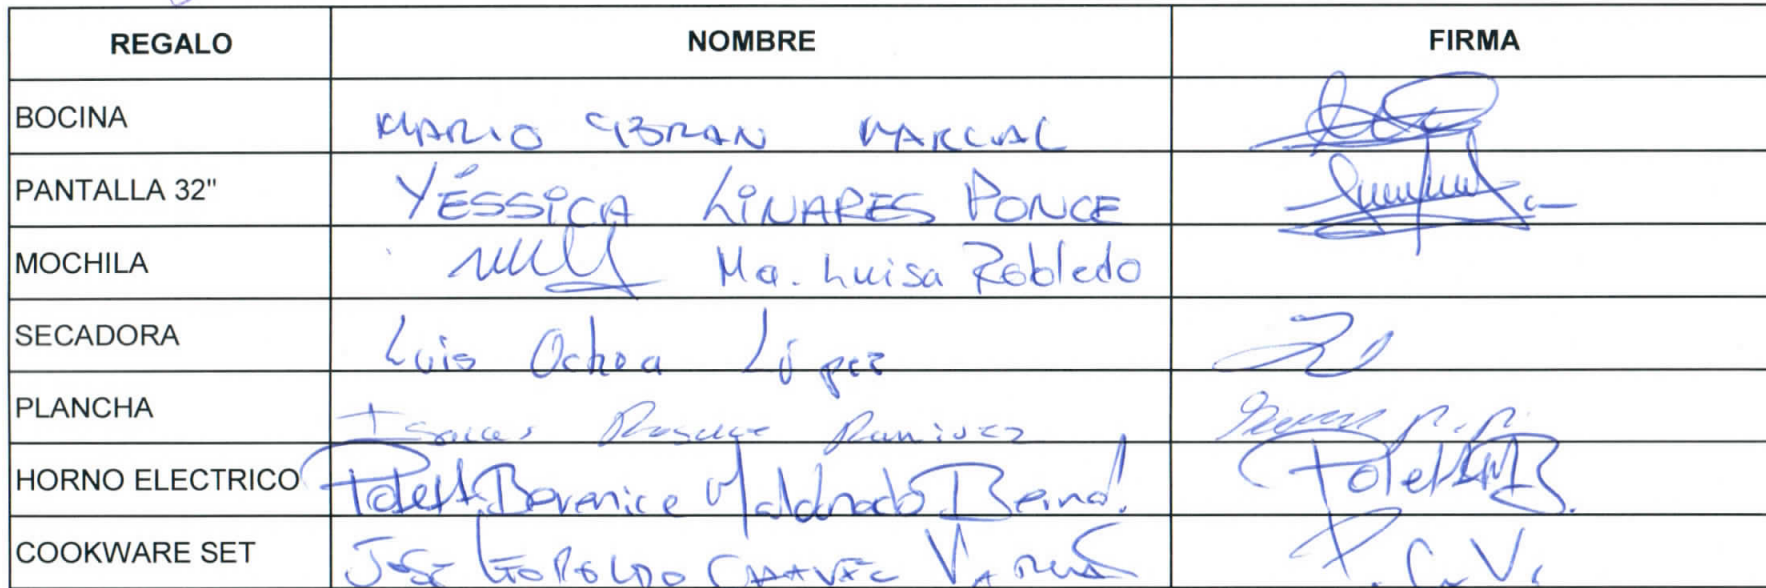 REGALO NOMBRE FIRMA
BOCINA MARIO GIBRAN MARCIAL
PANTALLA 32" YÉSSICA LINARES PONCE
MOCHILA Ma. Luisa Robledo
SECADORA Luis Ochoa López
PLANCHA Ramirez
HORNO ELECTRICO Polett Berenice Maldonado Bernal Polett MB.
COOKWARE SET JOSE LEOPOLDO CHAVEZ